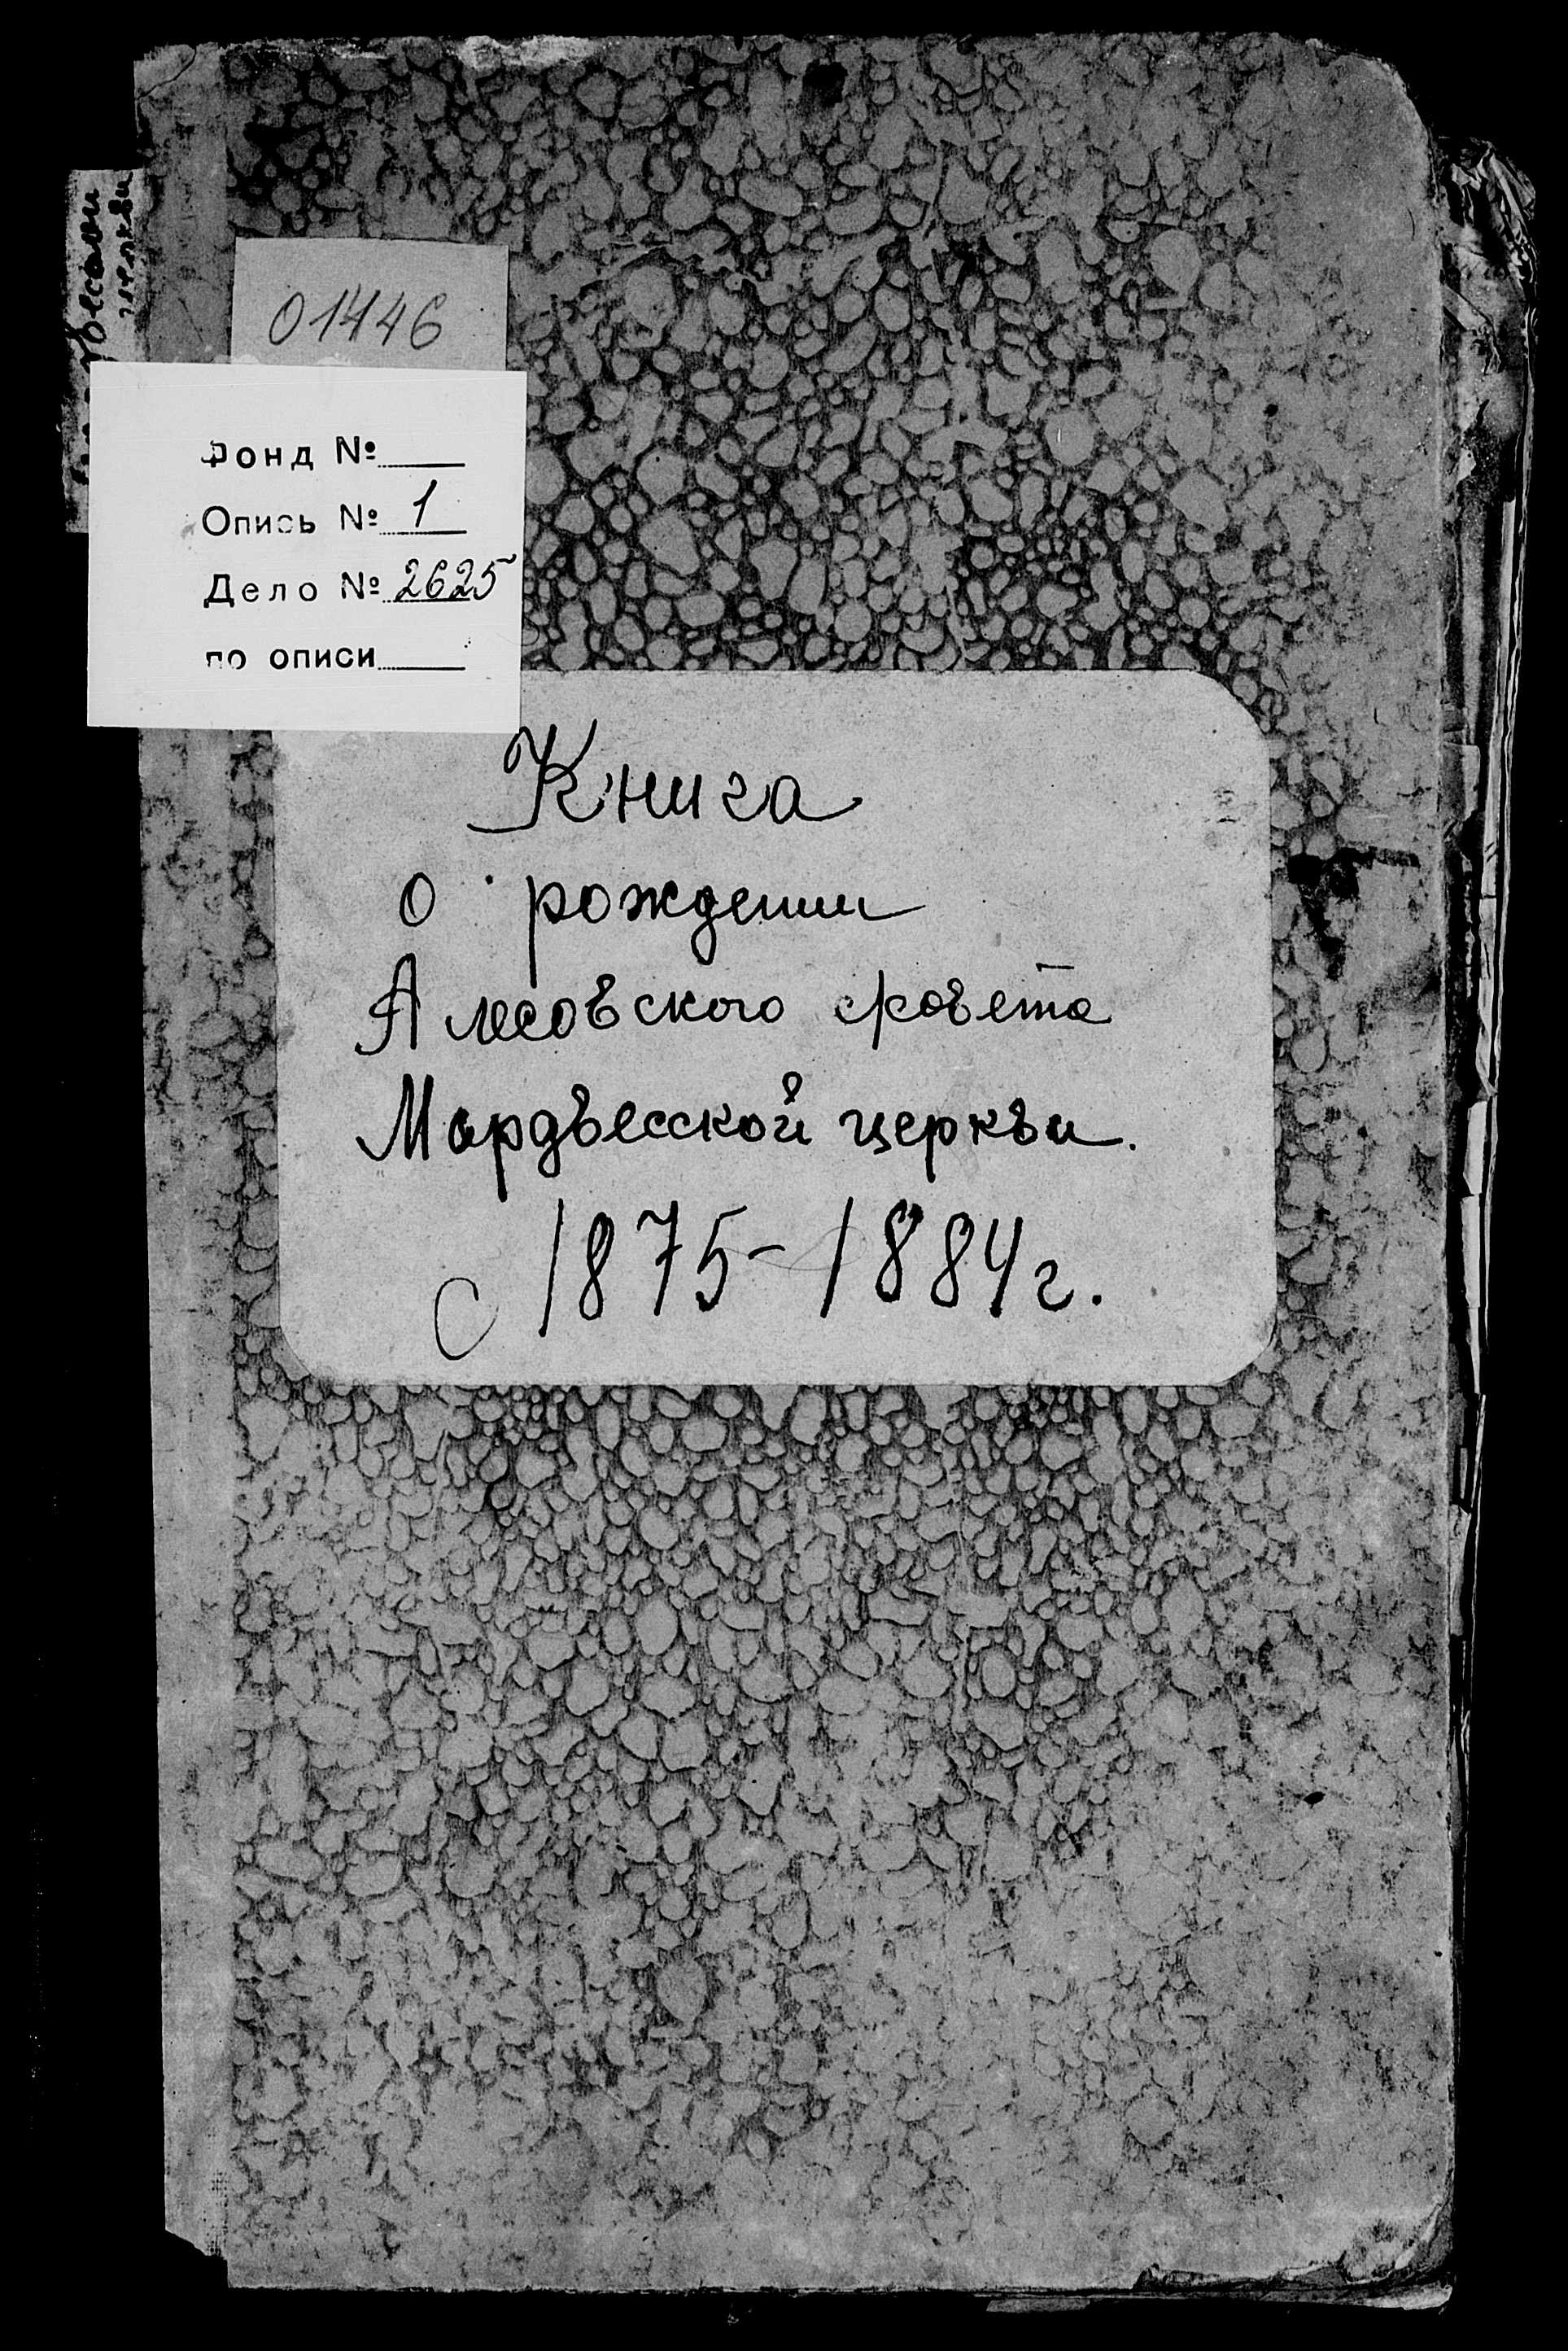 01446
Фонд №
Опись № 1
Дело № 2625
по описи
Книга
о рождении
совета
церкви.
с 1875-1884г.